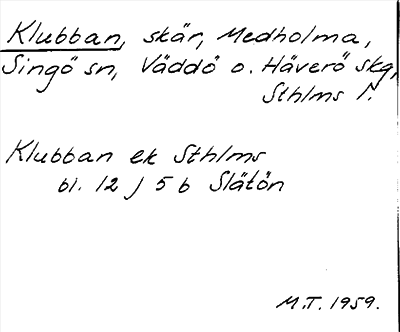 Klubban, skär, Medholma,
Singö sn, Väddö o. Häverö skg,
Sthlms l.
Klubban ek Sthlms
bl. 12 J 5 b Slätön
M.T. 1959.